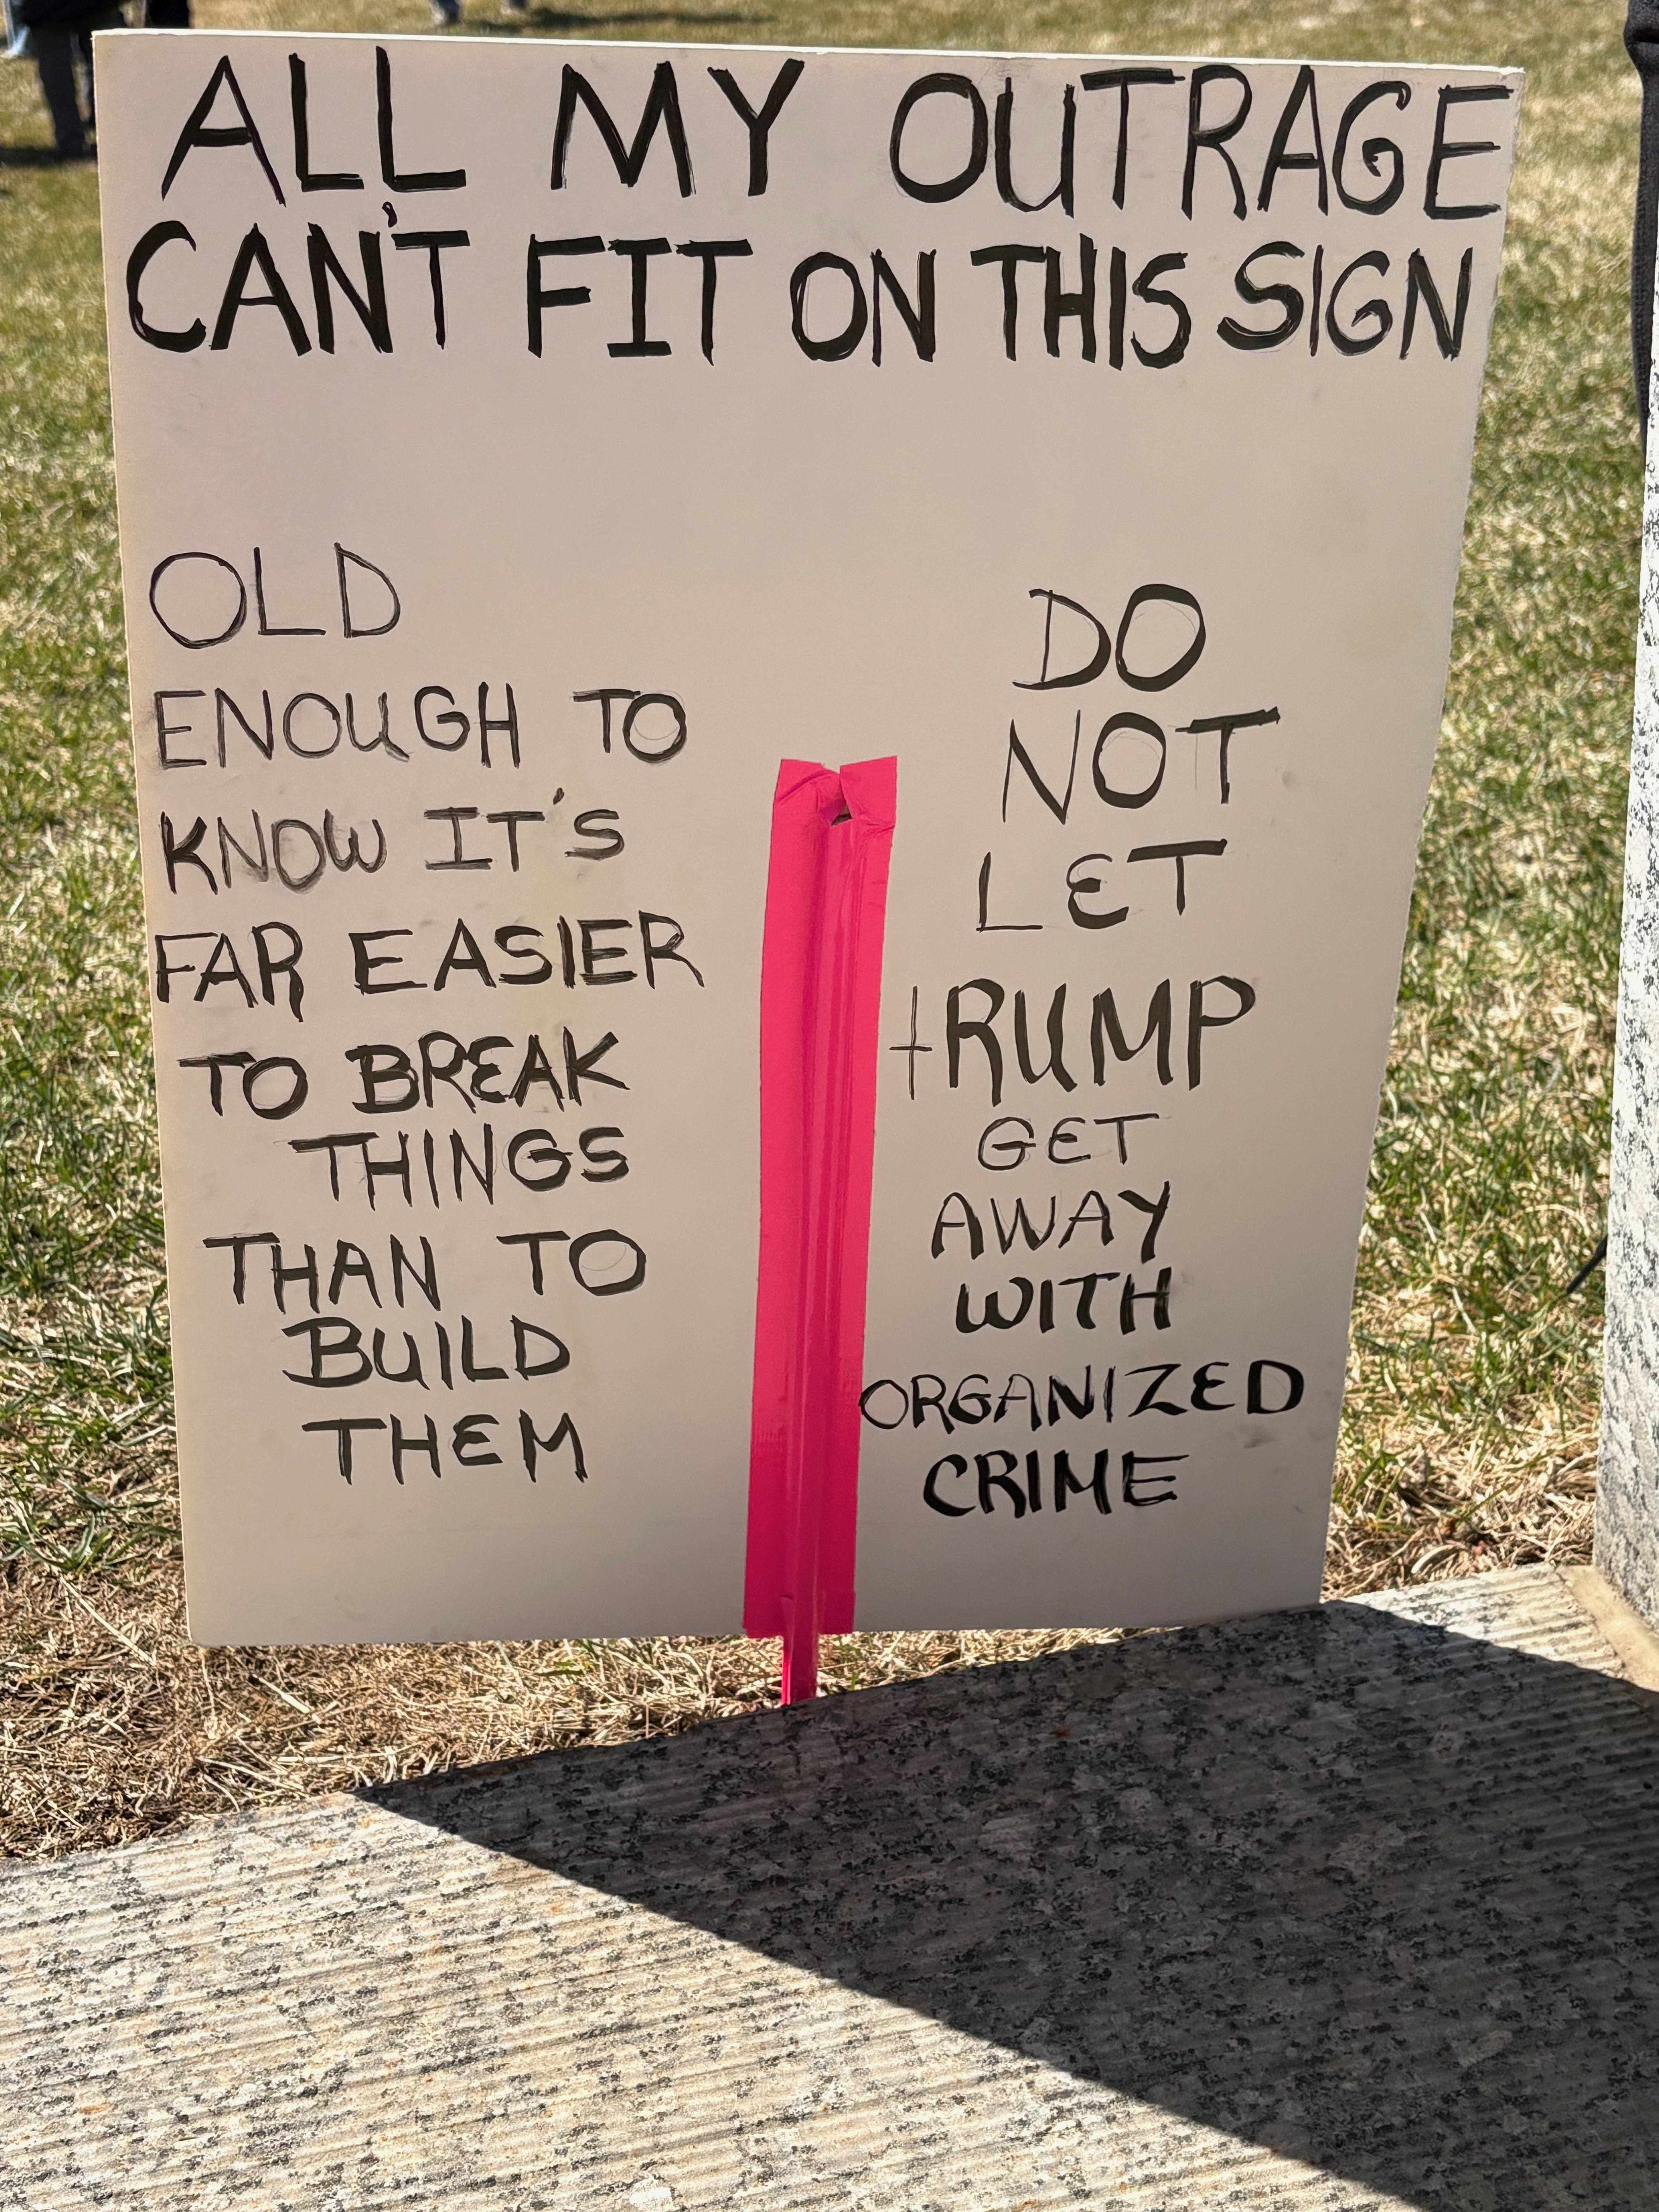 ALL MY OUTRAGE
CAN'T FIT ON THIS SIGN
OLD
ENOUGH TO
KNOW IT'S
FAR EASIER
TO BREAK
THINGS
THAN TO
BUILD
THEM
DO
NOT
LET
tRUMP
GET
AWAY
WITH
ORGANIZED
CRIME